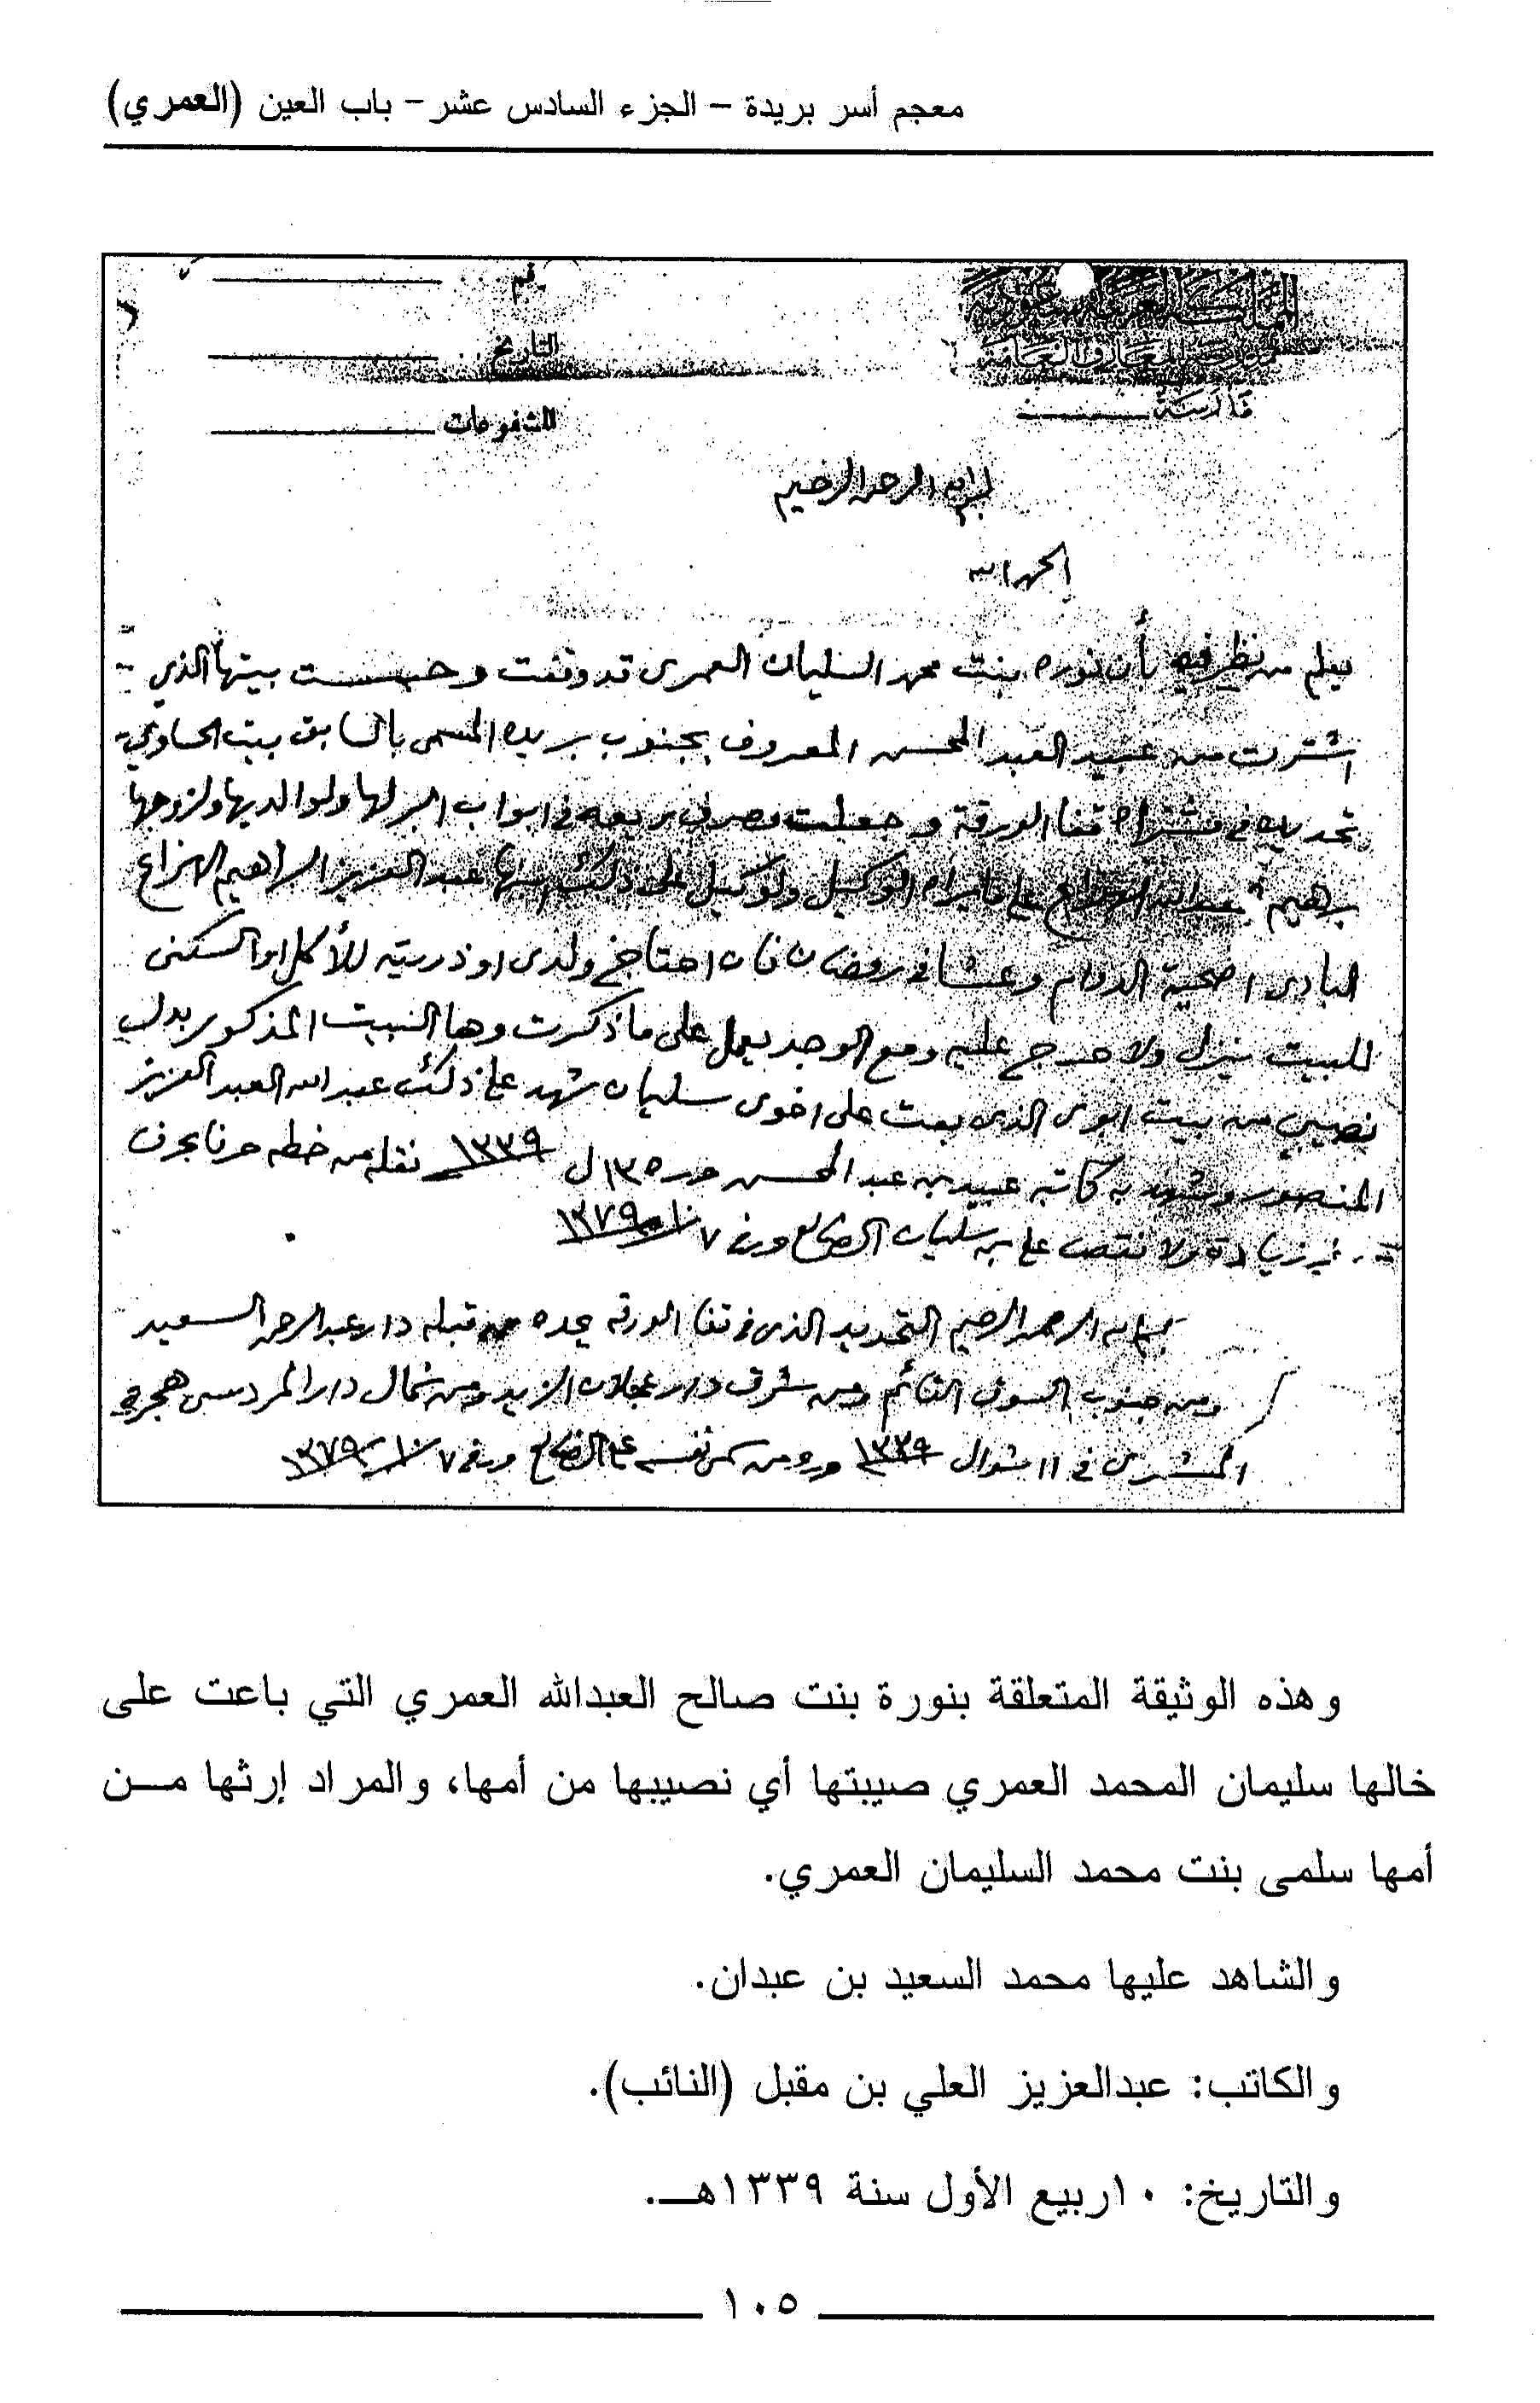 معجم أسر بريدة – الجزء السادس عشر – باب العين (العمري)
رقم
المملكة العربية السعودية
التاريخ
المعارف العامة
المشفوعات
مدرسة
بسم الله الرحمن الرحيم
الحمد لله
يعلم من نظر فيه بأن نوره بنت محمد السليمان العمرى قد وقفت وحبست بيتها الذي
اشترت من عبيد العبد المحسن المعروف بجنوب بريده المسمى بالسابق بيت الحساوي
تحديده في مشتراه قفا الورقة وجعلت مصرف ريعه في ابواب البر لها ولوالديها ولزوجها
براهيم عبدالله الهزاع على ما يراه الوكيل والوكيل على ذلك ابنها عبد العزيز البراهيم الهزاع
البادى اضحية الدوام وعشا في رمضان فان احتاج ولدى او ذريته للأكل او السكنى
للبيت ينزل ولا حرج عليه ومع الوجد يعمل على ما ذكرت وها البيت المذكور بدل
نصيبي من بيت ابوى الذى بعت على اخوى سليمان شهد على ذلك عبد الله العبد العزيز
المنصور وشهد به كاتبه عبيد بن عبد المحسن حرر ١٣٥ ل ١٣٣٩ نقله من خطه حرفا بحرف
من غير زيادة ولا نقص علي بن سليمان الضالع ١٣٧٩/١٠/٧
بسم الله الرحمن الرحيم التحديد الذى في قفا الورقه يحده من قبله دار عبد الرحمن السعيد
ومن جنوب السوق القائم ومن شرق دار عجلان الزيد ومن شمال دار المردسى
المشترى في ١١ شوال ١٣٣٩ علي الضالع ١٣٧٩/١٠/٧
وهذه الوثيقة المتعلقة بنورة بنت صالح العبدالله العمري التي باعت على
خالها سليمان المحمد العمري صيبتها أي نصيبها من أمها، والمراد إرثها مـــن
أمها سلمى بنت محمد السليمان العمري.
والشاهد عليها محمد السعيد بن عبدان.
والكاتب: عبدالعزيز العلي بن مقبل (النائب).
والتاريخ: ١٠ربيع الأول سنة ١٣٣٩هـــ.
١٠٥